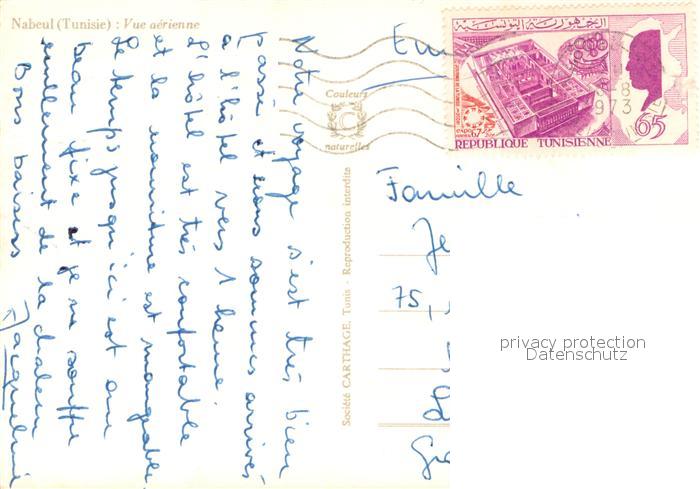 Nabeul (Tunisie) : Vue aérienne
Notre voyage s'est très bien
passé et nous sommes arrivés
à l'hôtel vers 1 heure.
L'hôtel est très confortable
et la nourriture est mangeable
Le temps jusqu'ici est au
beau fixe et je ne souffre
nullement de la chaleur
Bons baisers
Jacqueline
Couleurs
C
naturelles
Société CARTHAGE, Tunis - Reproduction interdite
الجمهورية التونسية
EXPO 67
REPUBLIQUE TUNISIENNE
65
8
1973
Famille
Je
75,
privacy protection
Datenschutz